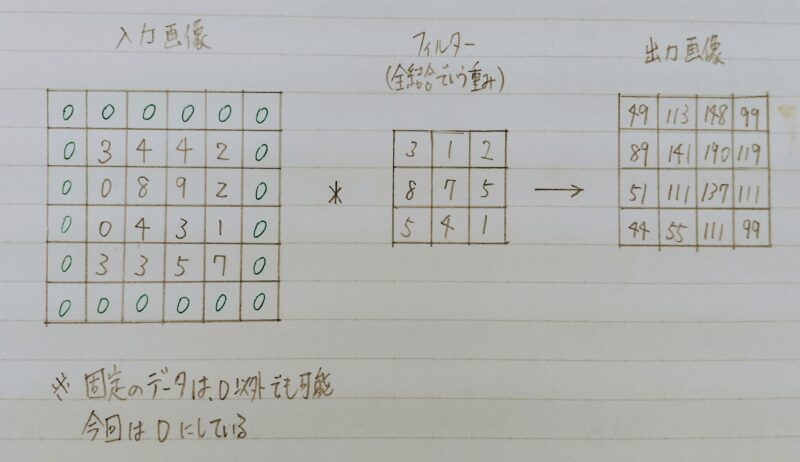 入力画像
フィルター
(全結合でいう重み)
出力画像
0 0 0 0 0 0
0 3 4 4 2 0
0 0 8 9 2 0
0 0 4 3 1 0
0 3 3 5 7 0
0 0 0 0 0 0
*
3 1 2
8 7 5
5 4 1
→
49 113 148 99
89 141 190 119
51 111 137 111
44 55 111 99
※ 固定のデータは、0以外でも可能
今回は0にしている